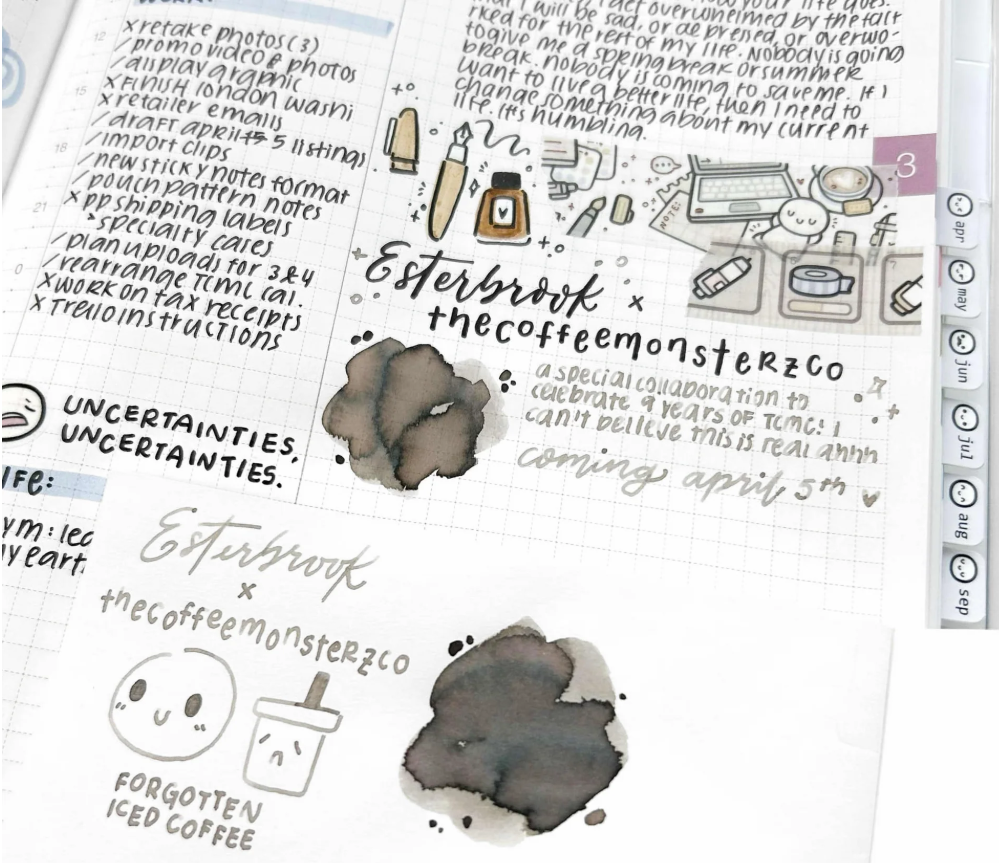 WORK:
12
x retake photos (3)
/ promo video & photos
/ display graphic
15
x FINISH london washi
x retailer emails
/ draft april 5 listings
18
/ import clips
/ new sticky notes format
/ pouch pattern notes
21
x pp shipping labels
* specialty cares
/ plan uploads for 3 & 4
0
/ rearrange TCMC cal.
x WORK on tax receipts
x Trello instructions
UNCERTAINTIES,
UNCERTAINTIES.
IFE:
ym: leg
y eart
that I will be sad, or depressed, or overwo-
rked for the rest of my life. Nobody is going
to give me a spring break or summer
break. nobody is coming to save me. If I
want to live a better life, then I need to
change something about my current
life. it's humbling.
NOTE:
3
Esterbrook x
thecoffeemonsterzco
a special collaboration to
celebrate 9 years OF TCMC! I
can't believe this is real ahhh
coming april 5th
apr
may
jun
jul
aug
sep
Esterbrook
x
thecoffeemonsterzco
FORGOTTEN
ICED COFFEE